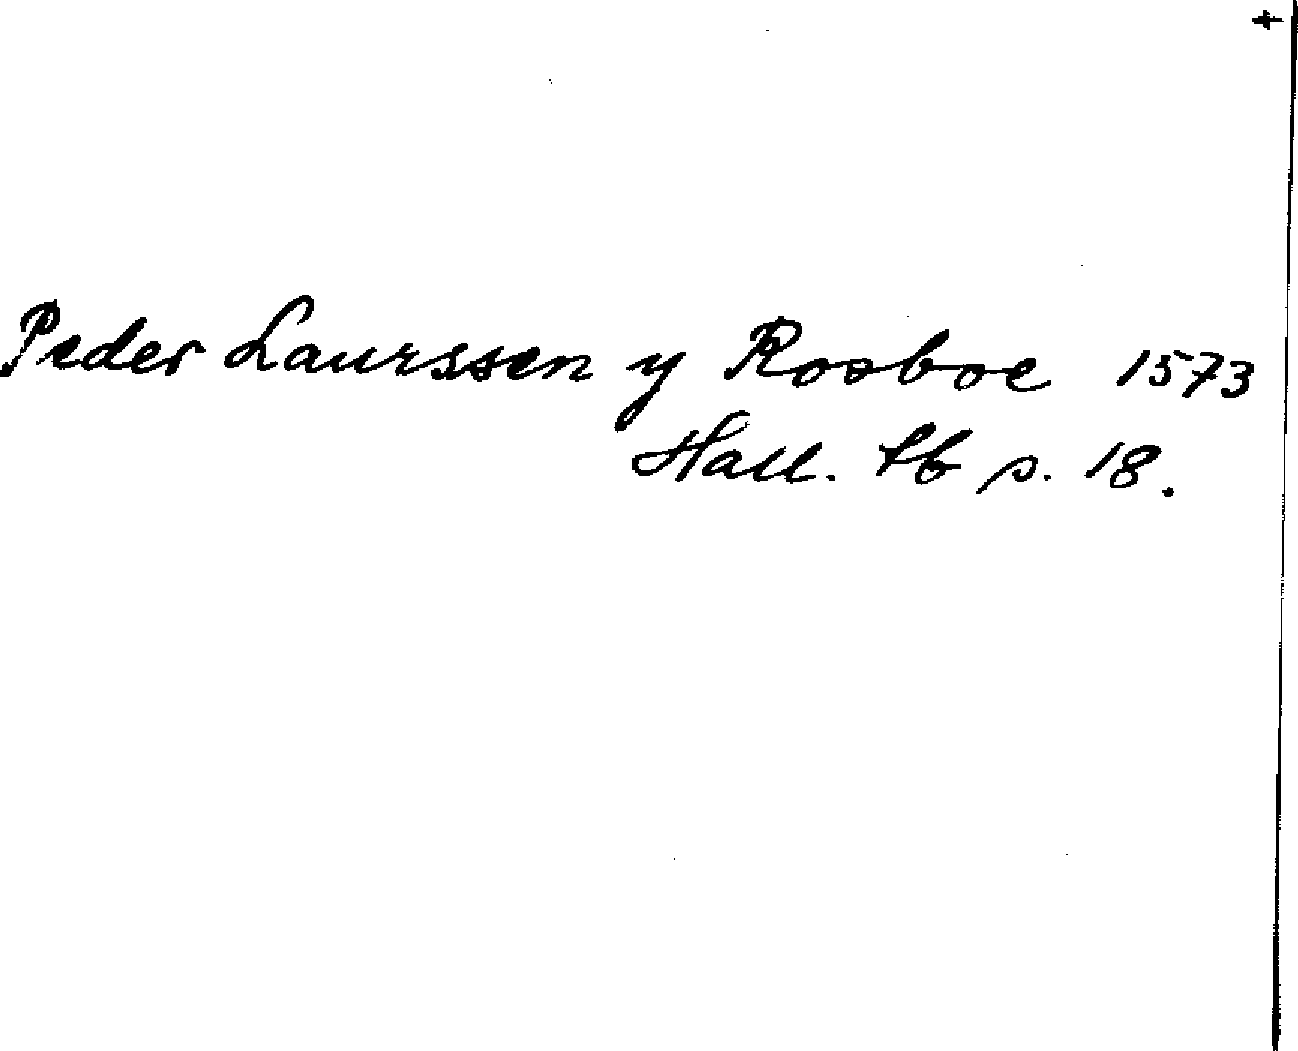 Peder Laurssen y Rosboe 1573
Hall. lb s. 18.